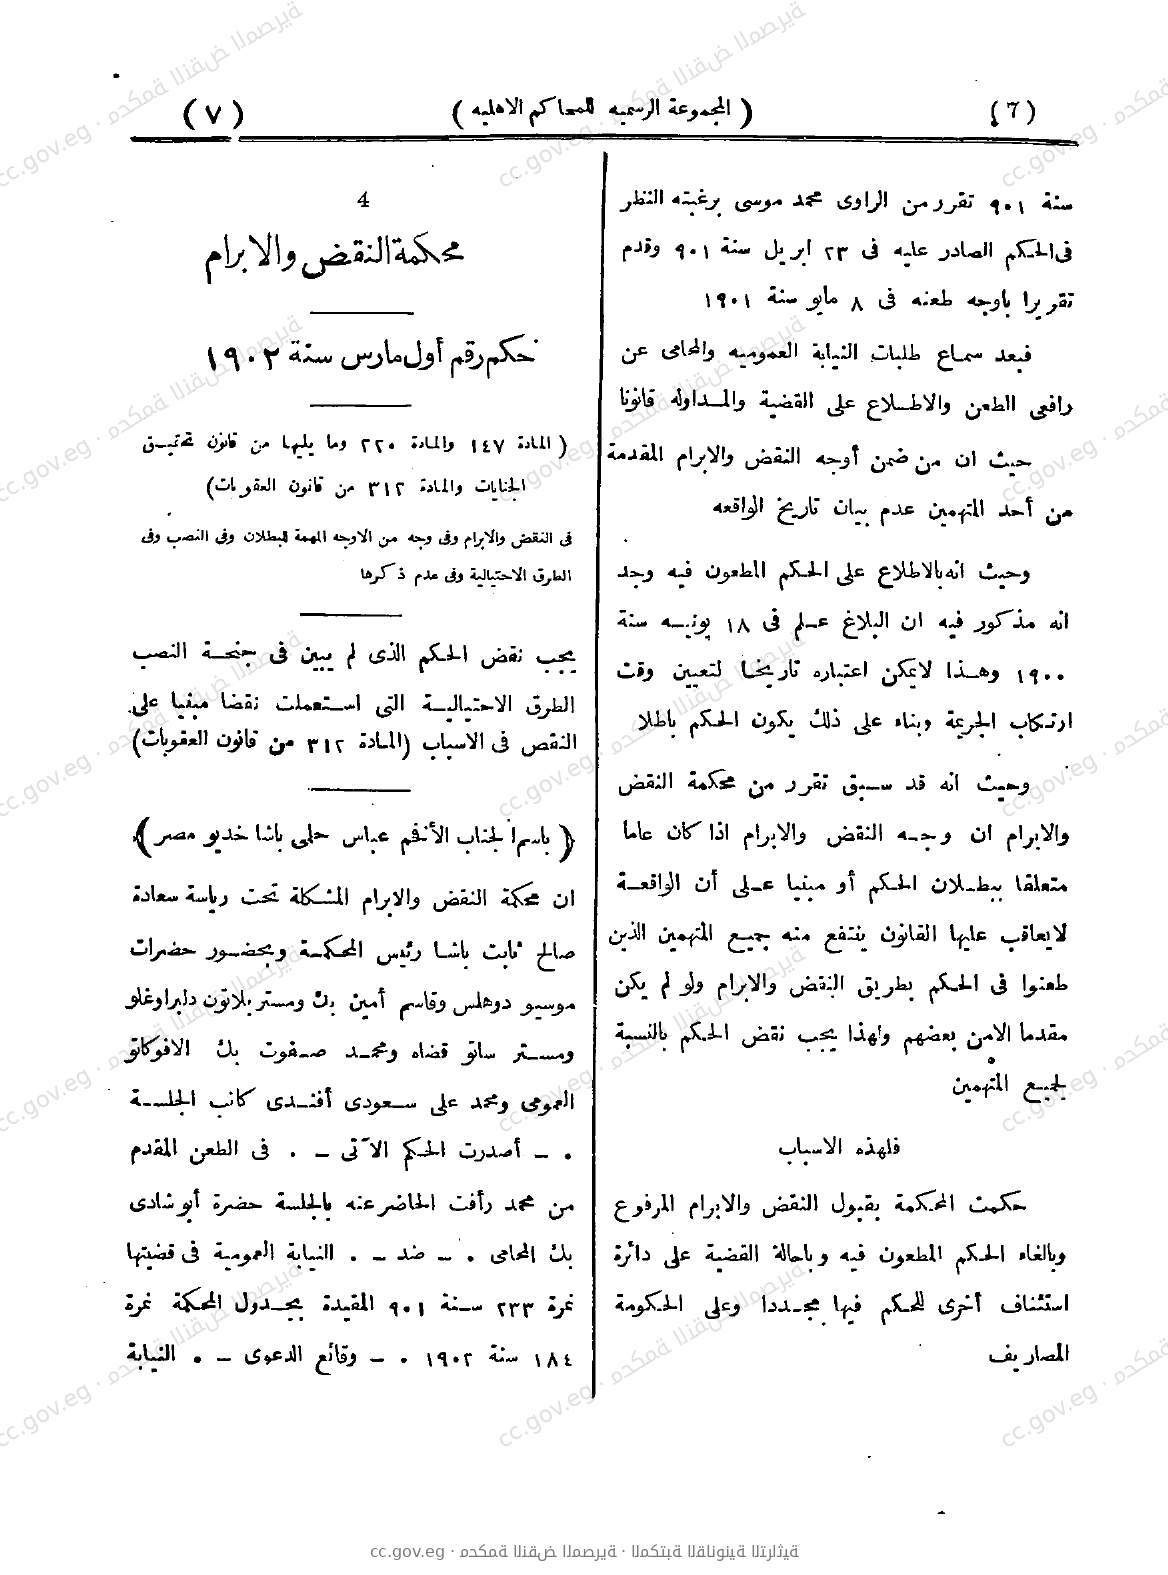 (٦) ( المجموعة الرسميه للمحاكم الاهليه ) (٧)
سنة ٩٠١ تقرر من الراوى محمد موسى برغبته النظر
فى الحكم الصادر عليه فى ٢٣ ابريل سنة ٩٠١ وقدم
تقريرا باوجه طعنه فى ٨ مايو سنة ١٩٠١
فبعد سماع طلبات النيابة العموميه والمحامى عن
رافعى الطعن والاطلاع على القضية والمداوله قانونا
حيث ان من ضمن أوجه النقض والابرام المقدمة
من أحد المتهمين عدم بيان تاريخ الواقعه
وحيث انه بالاطلاع على الحكم المطعون فيه وجد
انه مذكور فيه ان البلاغ علم فى ١٨ يونيه سنة
١٩٠٠ وهذا لايمكن اعتباره تاريخا لتعيين وقت
ارتكاب الجريمة وبناء على ذلك يكون الحكم باطلا
وحيث انه قد سبق تقرر من محكمة النقض
والابرام ان وجه النقض والابرام اذا كان عاما
متعلقا ببطلان الحكم أو مبنيا على أن الواقعة
لايعاقب عليها القانون ينتفع منه جميع المتهمين الذين
طعنوا فى الحكم بطريق النقض والابرام ولو لم يكن
مقدما الا من بعضهم ولهذا يجب نقض الحكم بالنسبة
لجميع المتهمين
فلهذه الاسباب
حكمت المحكمة بقبول النقض والابرام المرفوع
وبالغاء الحكم المطعون فيه وباحالة القضية على دائرة
استئناف أخرى للحكم فيها مجددا وعلى الحكومة
المصاريف
4
محكمة النقض والابرام
حكم رقم أول مارس سنة ١٩٠٢
( المادة ١٤٧ والمادة ٢٢٠ وما يليها من قانون تحقيق
الجنايات والمادة ٣١٢ من قانون العقوبات)
فى النقض والابرام وفى وجه من الاوجه المهمة للبطلان وفى النصب وفى
الطرق الاحتيالية وفى عدم ذكرها
يجب نقض الحكم الذى لم يبين فى جنحة النصب
الطرق الاحتيالية التى استعملت نقضا مبنيا على
النقص فى الاسباب (المادة ٣١٢ من قانون العقوبات)
( باسم الجناب الأفخم عباس حلمى باشا خديو مصر )
ان محكمة النقض والابرام المشكلة تحت رياسة سعادة
صالح ثابت باشا رئيس المحكمة وبحضور حضرات
موسيو دوهلس وقاسم أمين بك ومستر بلاتون دلبراوغلو
ومستر ساتو قضاه ومحمد صفوت بك الافوكاتو
العمومى ومحمد على سعودى أفندى كاتب الجلسة
. ـ أصدرت الحكم الآتى ـ . فى الطعن المقدم
من محمد رأفت الحاضر عنه بالجلسة حضرة أبو شادى
بك المحامى . ـ ضد ـ . النيابة العمومية فى قضيتها
نمرة ٢٣٣ سنة ٩٠١ المقيدة بجدول المحكمة نمرة
١٨٤ سنة ١٩٠٢ . ـ وقائع الدعوى ـ . النيابة
cc.gov.eg · محكمة النقض المصرية · المكتبة القانونية التراثية